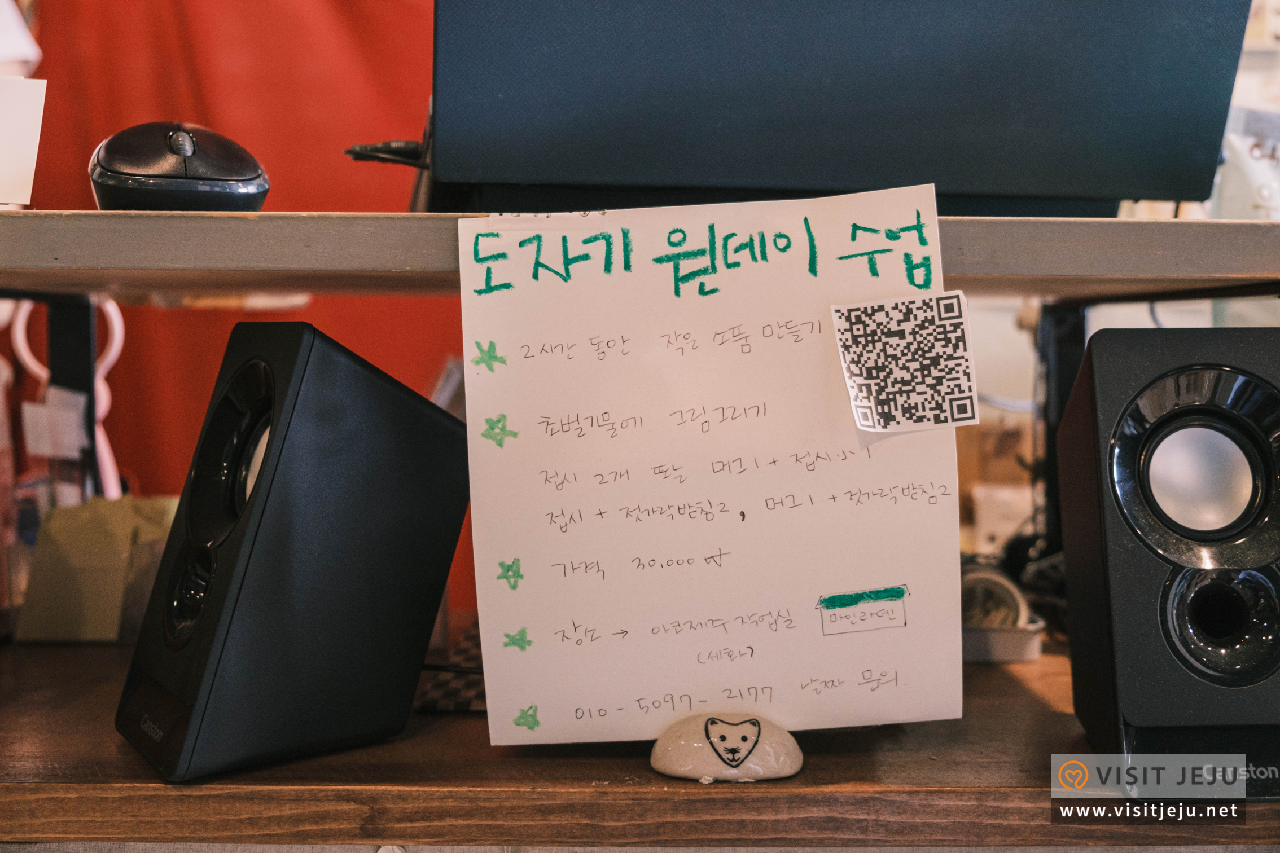 도자기 원데이 수업
2시간 동안 작은 소품 만들기
초벌기물에 그림그리기
접시 2개 또는 머그1 + 접시小1
접시 + 젓가락받침2, 머그1 + 젓가락받침2
가격 30,000원
장소 → 아코제주 작업실
마인라덴
(세화)
010-5097-2177 날짜 문의
Canston
Canston
VISIT JEJU
www.visitjeju.net